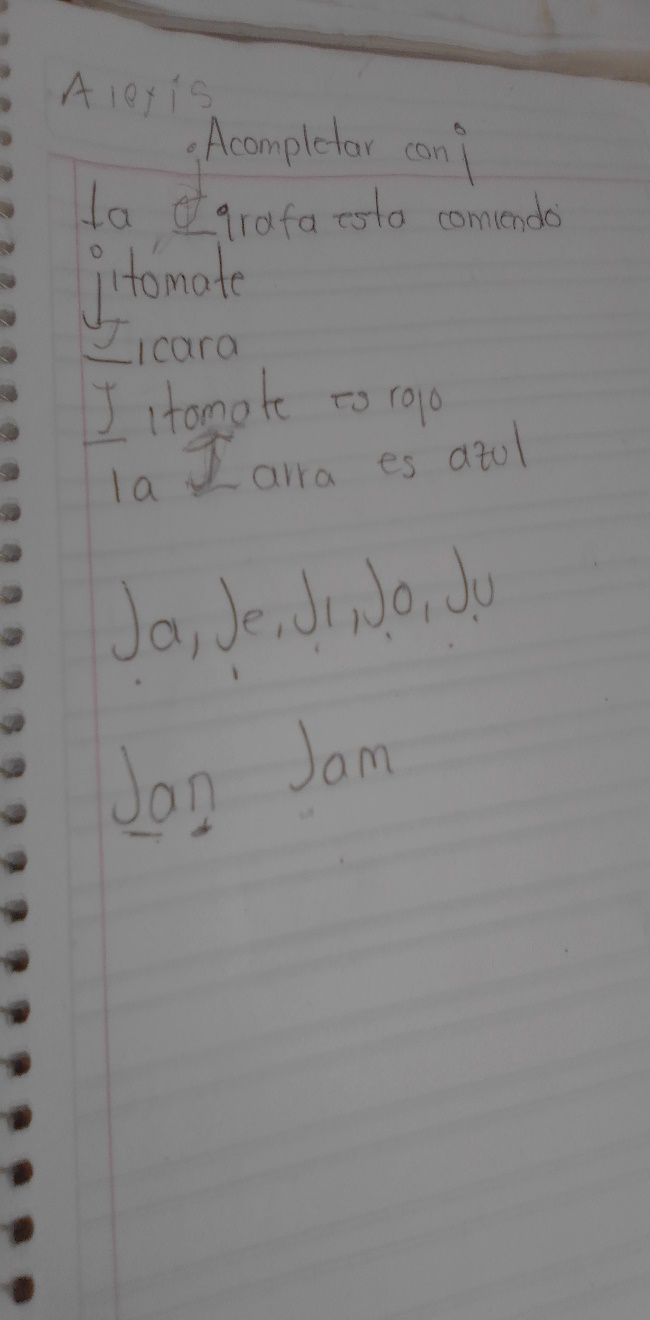 Alexis
Acompletar con j
la j grafa esta comiendo
jitomate
Jicara
J itomate es rojo
la J arra es azul
Ja, Je, Ji, Jo, Ju
Jan Jam